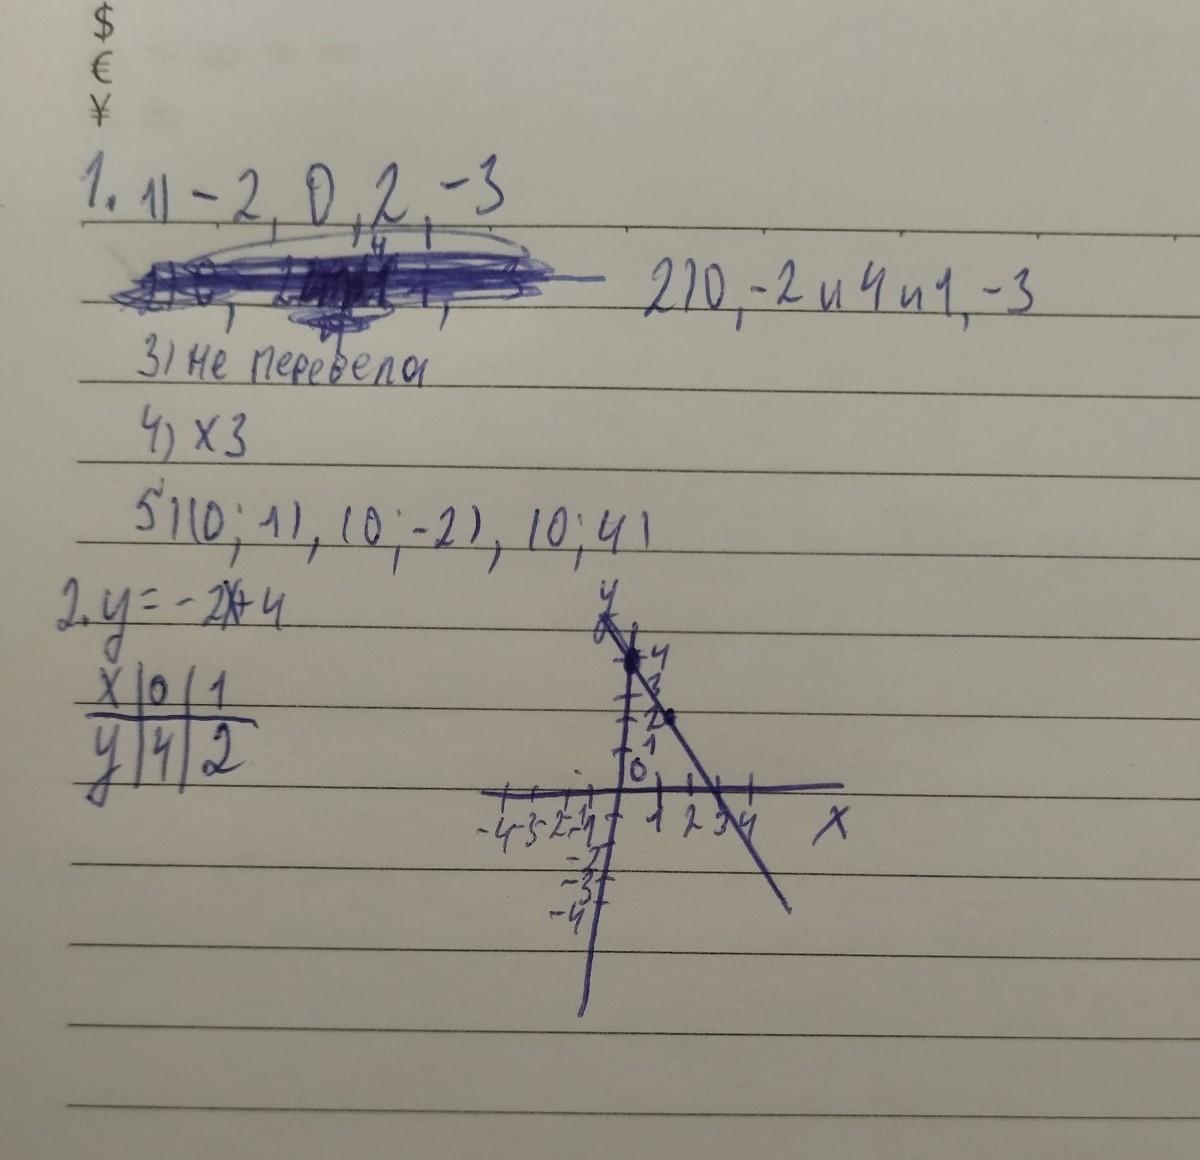 $
€
¥
1. 1) -2, 0, 2, -3
2) 0, -2 и 4 и 1, -3
3) не перевела
4) x3
5) (0; 1), (0; -2), (0; 4)
2. y = -2x+4
x 0 1
y 4 2
y
4
3
2
1
0
-4 -3 -2 -1 1 2 3 4 x
-2
-3
-4